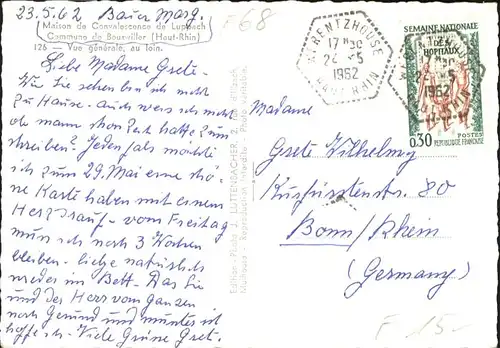 23.5.62 Bauer Marg.
F 68
Maison de Convalescence de Luppach
Commune de Bouxwiller (Haut-Rhin)
126 — Vue générale, au loin.
Liebe Madame Grete!
Wie Sie sehen bin ich nicht
zu Hause. Auch weiss ich nicht
ob man schon Zeit hatte zum
schreiben? Jeden falls möchte
ich zum 29. Mai eine schö-
ne Karte haben mit einem
Herz drauf - vom Freitag
muss ich noch 3 Wochen
bleiben - liege natürlich
wieder im Bett. Das Sie
und der Herr vom ganzen
noch Gesund und munter ist
hoffe ich. Viele Grüsse Gret.
WERENTZHOUSE
17 H30
24 - 5
1962
HAUT-RHIN
SEMAINE NATIONALE
DES
HÔPITAUX
0,30
POSTES
RÉPUBLIQUE FRANÇAISE
Madame
Grete Wilhelmy
Kurfürstenstr. 80
Bonn/Rhein
(Germany)
F 15.-